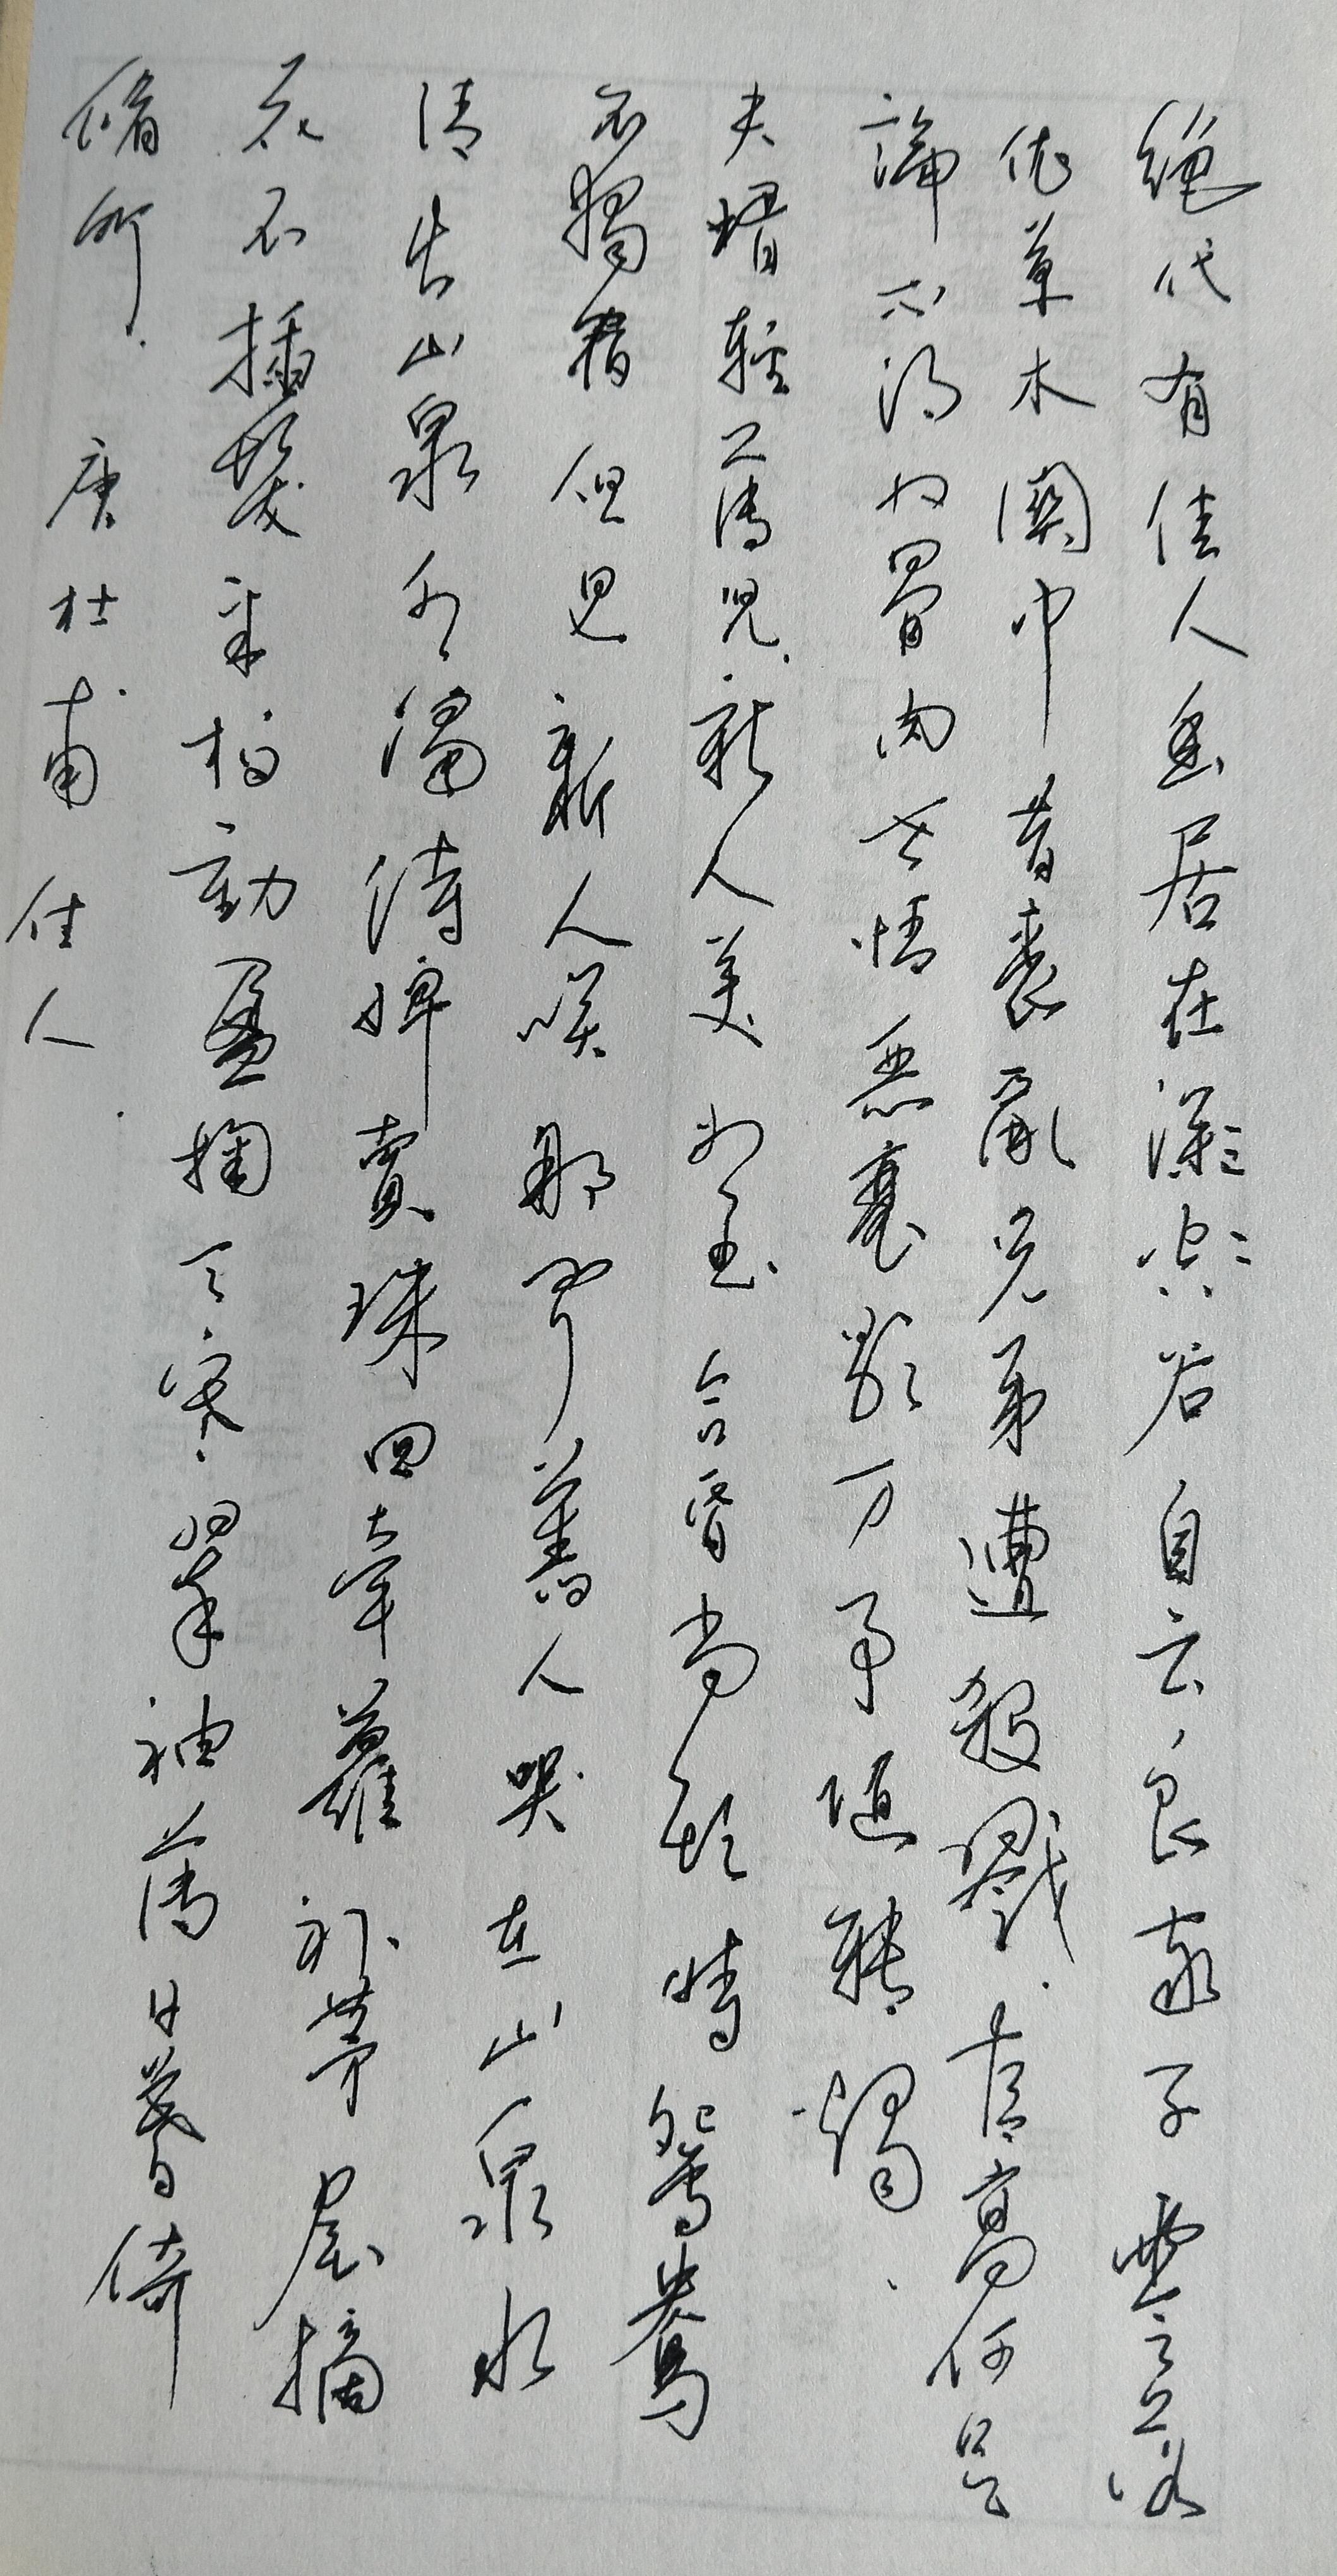 絕代有佳人幽居在深空谷自云良家子零落
依草木關中昔喪亂兄弟遭殺戮官高何足
論不得收骨肉世情惡衰歇万事隨轉燭
夫壻輕薄兒新人美如玉合昏尚知時鴛鴦
不獨宿但見新人笑那聞舊人哭在山泉水
清出山泉水濁侍婢賣珠回牽蘿補茅屋摘
花不插髮采柏動盈掬天寒翠袖薄日暮倚
脩竹 唐杜甫佳人